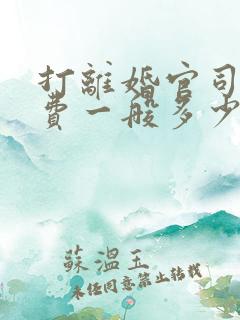 打離婚官司
費一般多少
蘇溫玉
未任同意禁止转载